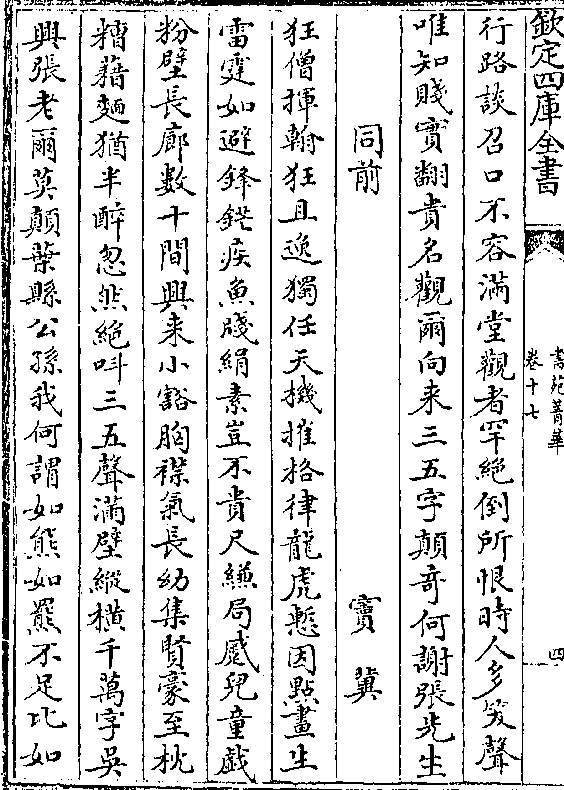 欽定四庫全書
書苑菁華
卷十七
四
行路談召口不容滿堂觀者罕絶倒所恨時人多笑聲
唯知賤實翻貴名觀爾向來三五字顛奇何謝張先生
同前
竇冀
狂僧揮翰狂且逸獨任天機摧格律龍虎慙因點畫生
雷霆如避鋒鋩疾魚牋絹素豈不貴尺縑局蹙兒童戲
粉壁長廊數十間興来小豁胸襟氣長幼集賢豪至枕
糟藉麯猶半醉忽然絶呌三五聲滿壁縱橫千萬字吳
興張老爾莫顛葉縣公孫我何謂如熊如羆不足比如